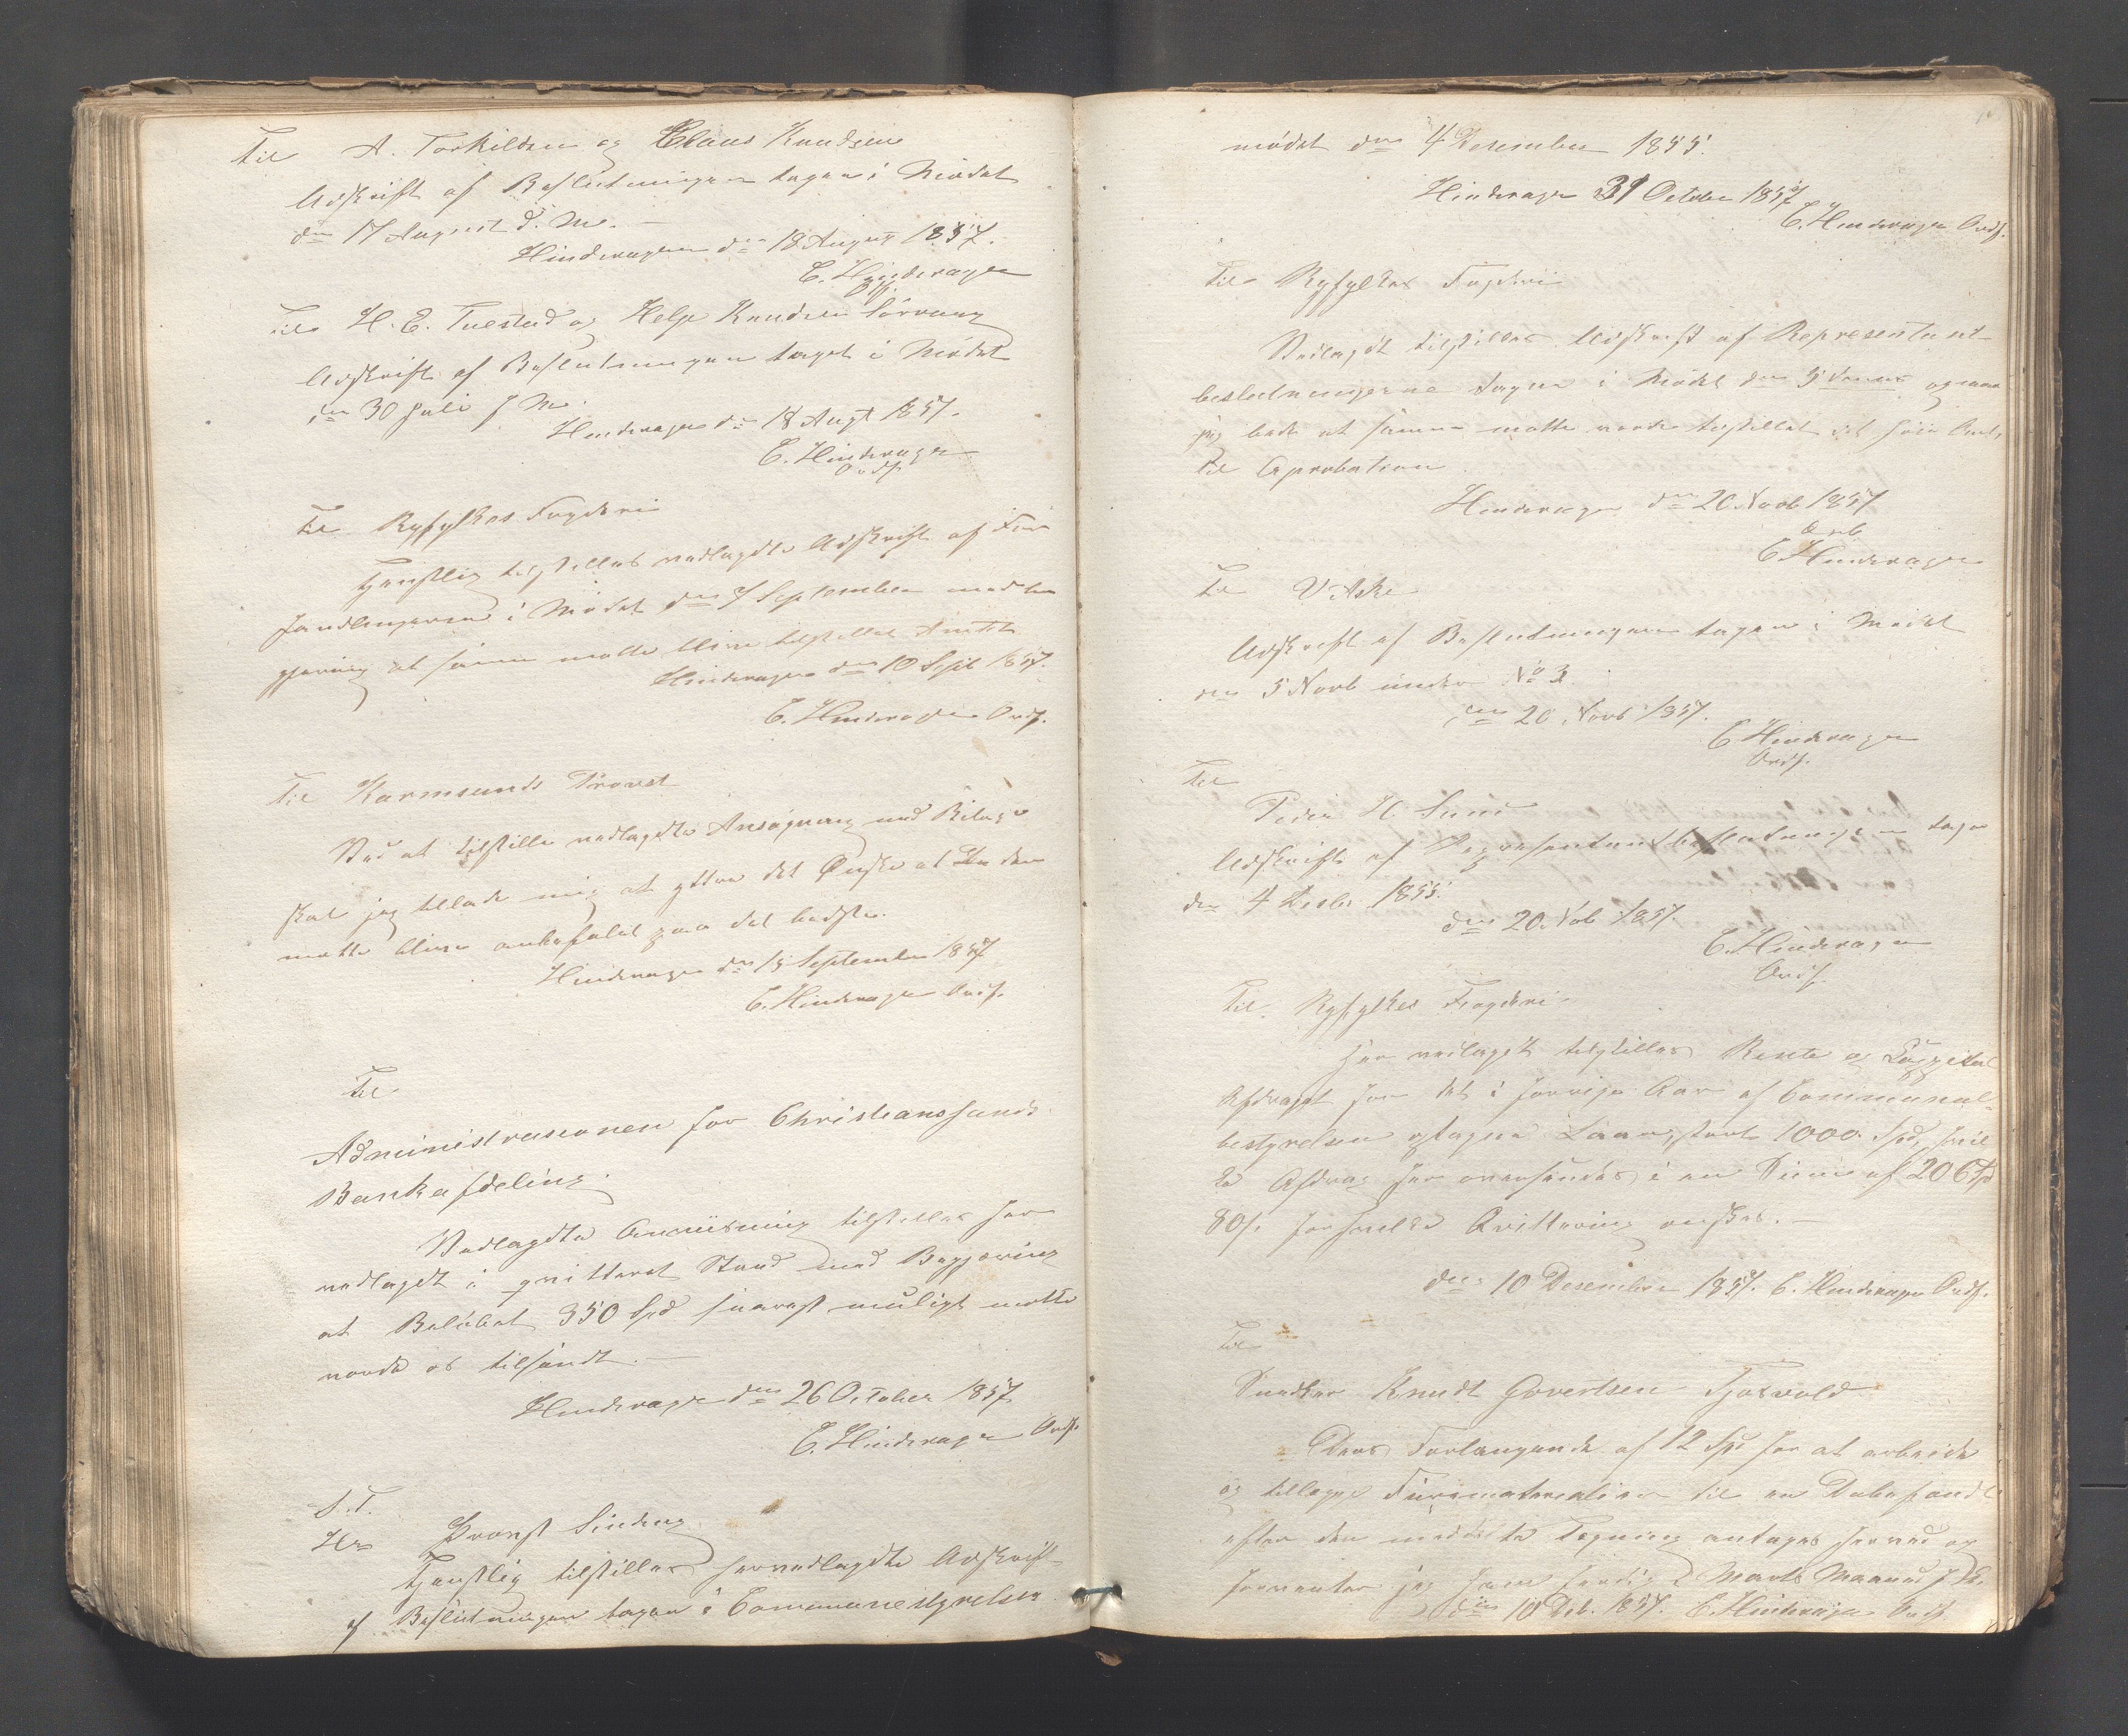 Til A. Torkildsen og Claus Knudsen
Udskrift af Beslutningen tagen i Mødet
den 17 August d. M.
Hinderager den 18 August 1857.
E. Hinderager
Til H. E. Tuestad og Helge Knudsen Sörvaag
Udskrift af Beslutningen taget i Mødet
den 30 Juli f M.
Hinderager den 18 Augt 1857.
E. Hinderager
Ordf.
Til Ryfylkes Fogderi
Tjenstlig tilstilles vedlagdte Udskrift af For
handlingerne i Mødet den 7 September med be
gjæring at samme matte blive tilstillet Amtet
Hinderager den 10 Sept 1857.
E. Hinderager Ordf.
Til Karmsunds Provst
Ved at tilstille vedlagdte Ansøgning med Bilage
skal jeg tillade mig at yttre det Ønske at den
matte blive anbefalet paa det bedste.
Hinderager den 15 September 1857
E. Hinderager Ordf.
Til
Administrasionen for Christianssands
Bankafdeling.
Vedlagdte Anviisning tilstilles her
vedlagdt i qvitteret Stand med Begjæring
at Beløbet 350 Spd snarest muligt matte
vorde os tilsendt.
Hinderager den 26 October 1857
E. Hinderager Ordf.
S. T.
Hr Provst Sinding
Tjenstlig tilstilles hervedlagdte Udskrift
af Beslutningen tagen i Communestyrelsen
mødet den 4 Desember 1855.
Hinderager 31 October 1857
E. Hinderager Ordf.
Til Ryfylkes Fogderi
Vedlagdt tilstilles Udskrift af Representant-
beslutningerne tagne i Mødet den 5 og maa
jeg bede at samme matte vorde tilstillet det høie Amt
til Aprobation
Hinderager den 20 Novb 1857
E Hinderager
Til V Aske
Udskrift af Beslutningen tagen i Mødet
den 5 Novb under No 3.
den 20 Novb 1857.
E Hinderager
Ordf.
Til
Peder H. Sund
Udskrift af Representantbeslutningen tagen
den 4 Desbr 1855.
den 20 Nob 1857.
E. Hinderager
Ordf.
Til Ryfylkes Fogderi
Her vedlagdt tilstilles Rente og Cappital
Afdraget for det i forrige Aar af Communal-
bestyrelsen optagne Laan, stort 1000 Spd, hvil
ke Afdrag her oversendes i en Sum af 206 Spd
80 s. for hvilke Qvittering ønskes.
den 10 Desember 1857. E. Hinderager Ordf.
Til
Snedker Knudt Govertsen Fjosvold
Deres Forlangende af 12 Spd for at arbeide
og tillægge Furimaterialier til en Dobefondt
efter den meddelte Tegning antages herved og
forventer jeg ham færdig i Marts Maaned f. A.
den 10 Deb. 1857. E. Hinderager Ordf.